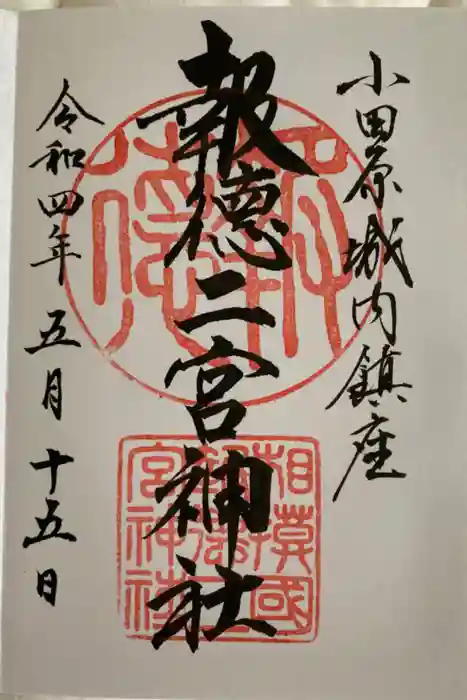 小田原城内鎮座
報徳二宮神社
令和四年 五月 十五日
報徳
相模國
報徳二
宮神社